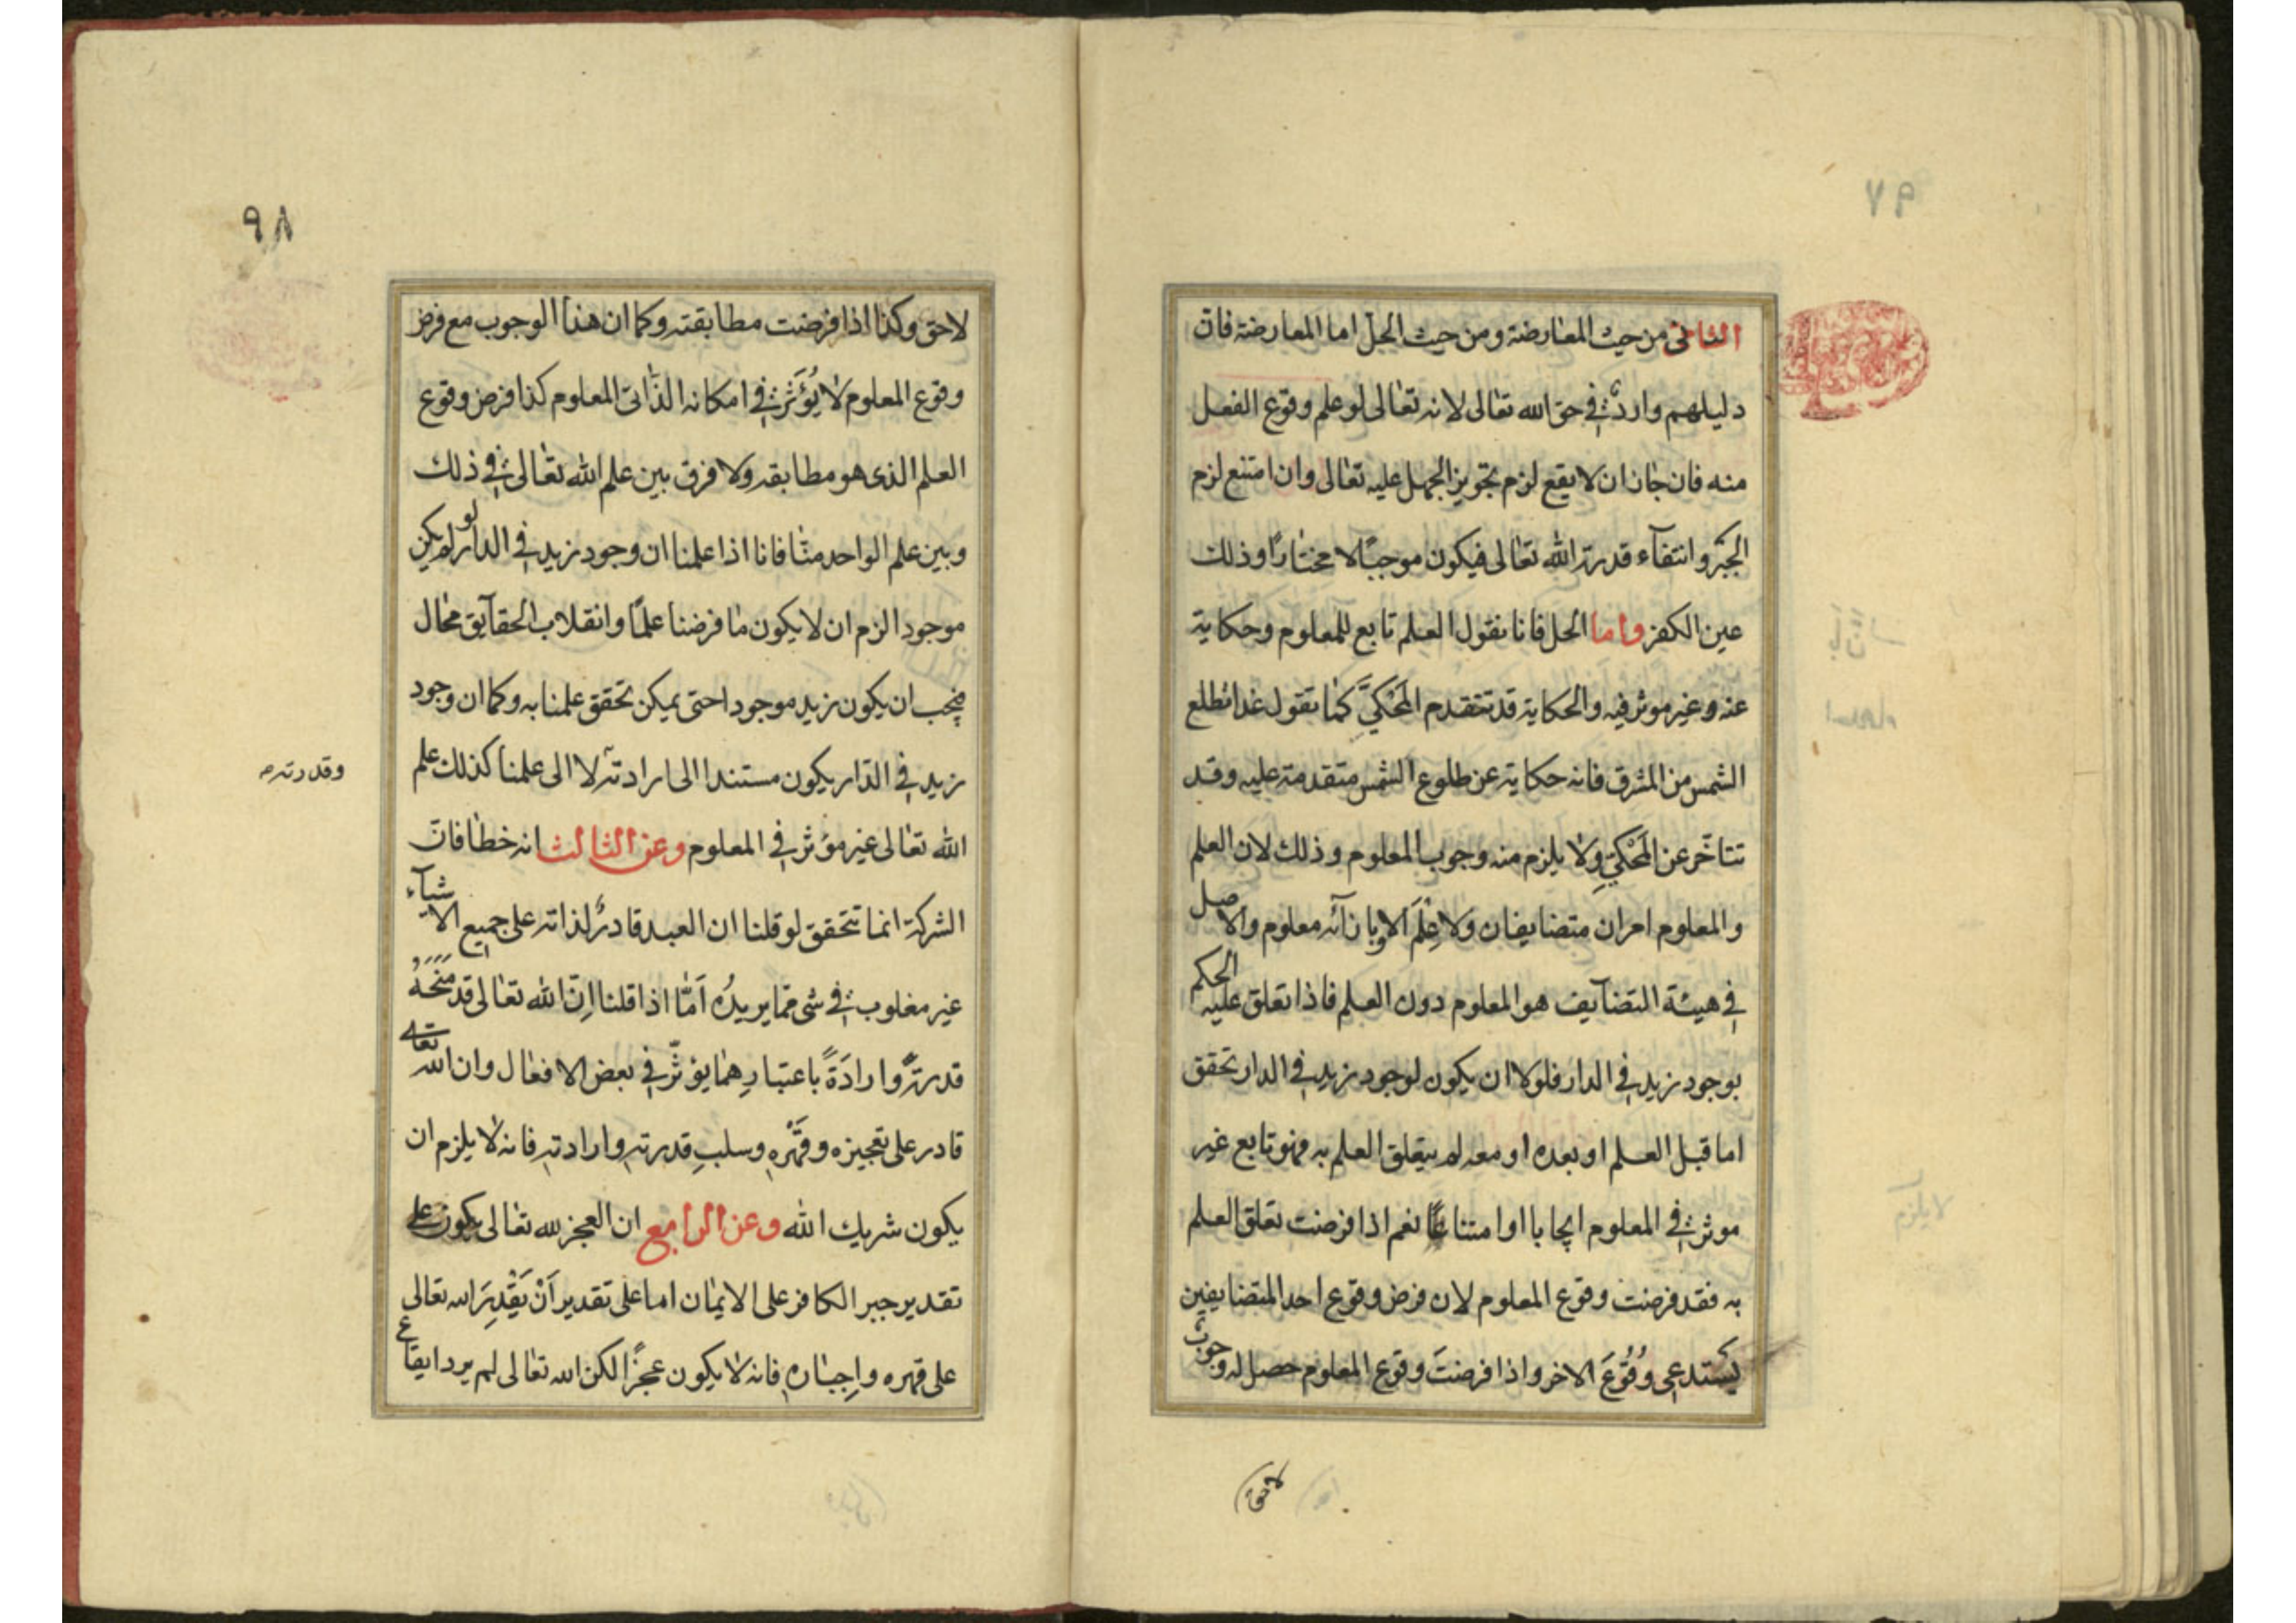 الثانى من حيث المعارضة ومن حيث الحل اما المعارضة فان
دليلهم واردٌ فى حق الله تعالى لانه تعالى لو علم وقوع الفعل
منه فان جاز ان لا يقع لزم تجويز الجهل عليه تعالى وان امتنع لزم
الجبر وانتفآء قدرة الله تعالى فيكون موجبًا لا مختارًا وذلك
عين الكفر واما الحل فانا نقول العلم تابع للمعلوم وحكاية
عنه وغير موثر فيه والحكاية قد تتقدم المَحْكيَّ كما تقول غدا تطلع
الشمس من المشرق فانه حكاية عن طلوع الشمس متقدمة عليه وقد
تتاخّر عن المَحْكيِّ ولا يلزم منه وجوب المعلوم وذلك لان العلم
والمعلوم امران متضايفان ولا عِلْمَ الا وبازآئه معلوم والاصل
فى هيئة التضآيف هو المعلوم دون العلم فاذا تعلق عليه الحكم
بوجود زيد فى الدار فلولا ان يكون لوجود زيد فى الدار تحقق
اما قبل العلم او بعده او معه لم يتعلق العلم به فهو تابع غير
موثر فى المعلوم ايجابا او امتناعًا نعم اذا فرضت تعلق العلم
به فقد فرضت وقوع المعلوم لان فرض وقوع احد المتضايفين
يستدعى وُقُوعَ الاخر واذا فرضتَ وقوع المعلوم حصل له وجوبٌ
لاحق
٩٨
لاحق وكذا اذا فرضت مطابقته وكما ان هذا الوجوب مع فرض
وقوع المعلوم لا يُؤَثرُ فى امكانه الذّاتى المعلوم كذا فرض وقوع
العلم الذى هو مطابقه ولا فرق بين علم الله تعالى فى ذلك
وبين علم الواحد منّا فانا اذا علمنا ان وجود زيد فى الدار لو لم يكن
موجودا لزم ان لا يكون ما فرضنا علمًا وانقلاب الحقآيق محال
فيجب ان يكون زيد موجودا حتى يمكن تحقق علمنا به وكما ان وجود
زيد فى الدّار يكون مستندا الى ارادته لا الى علمنا كذلك علم
وقدرته
الله تعالى غير مؤثر فى المعلوم وعن الثالث انه خطا فانّ
الشركة انما تتحقق لو قلنا ان العبد قادرٌ لذاته على جميع الاشيآء
غير مغلوب فى شى ممّا يريدُه اَمّا اذا قلنا اِنّ الله تعالى قد مَنَحَهُ
قدرةً وارادَةً باعتبارِهما يؤثّر فى بعض الافعال وان الله تعالى
قادر على تعجيزه وقَهْرِه وسلبِ قدرتهِ وارادتهِ فانه لا يلزم ان
يكون شريك الله وعن الرابع ان العجز لله تعالى يكون على
تقدير جبر الكافر على الايمان اما على تقدير اَنْ يَقْدِرَ الله تعالى
على قهره واِجباره فانه لا يكون عجزًا لكن الله تعالى لم يرد ايقاع